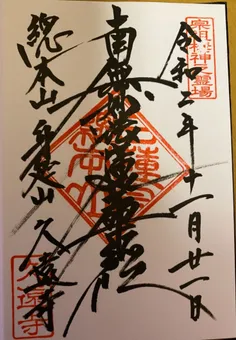 宗祖棲神之霊場
令和二年十一月廿一日
南無妙法蓮華経
総本山 身延山 久遠寺
久遠寺